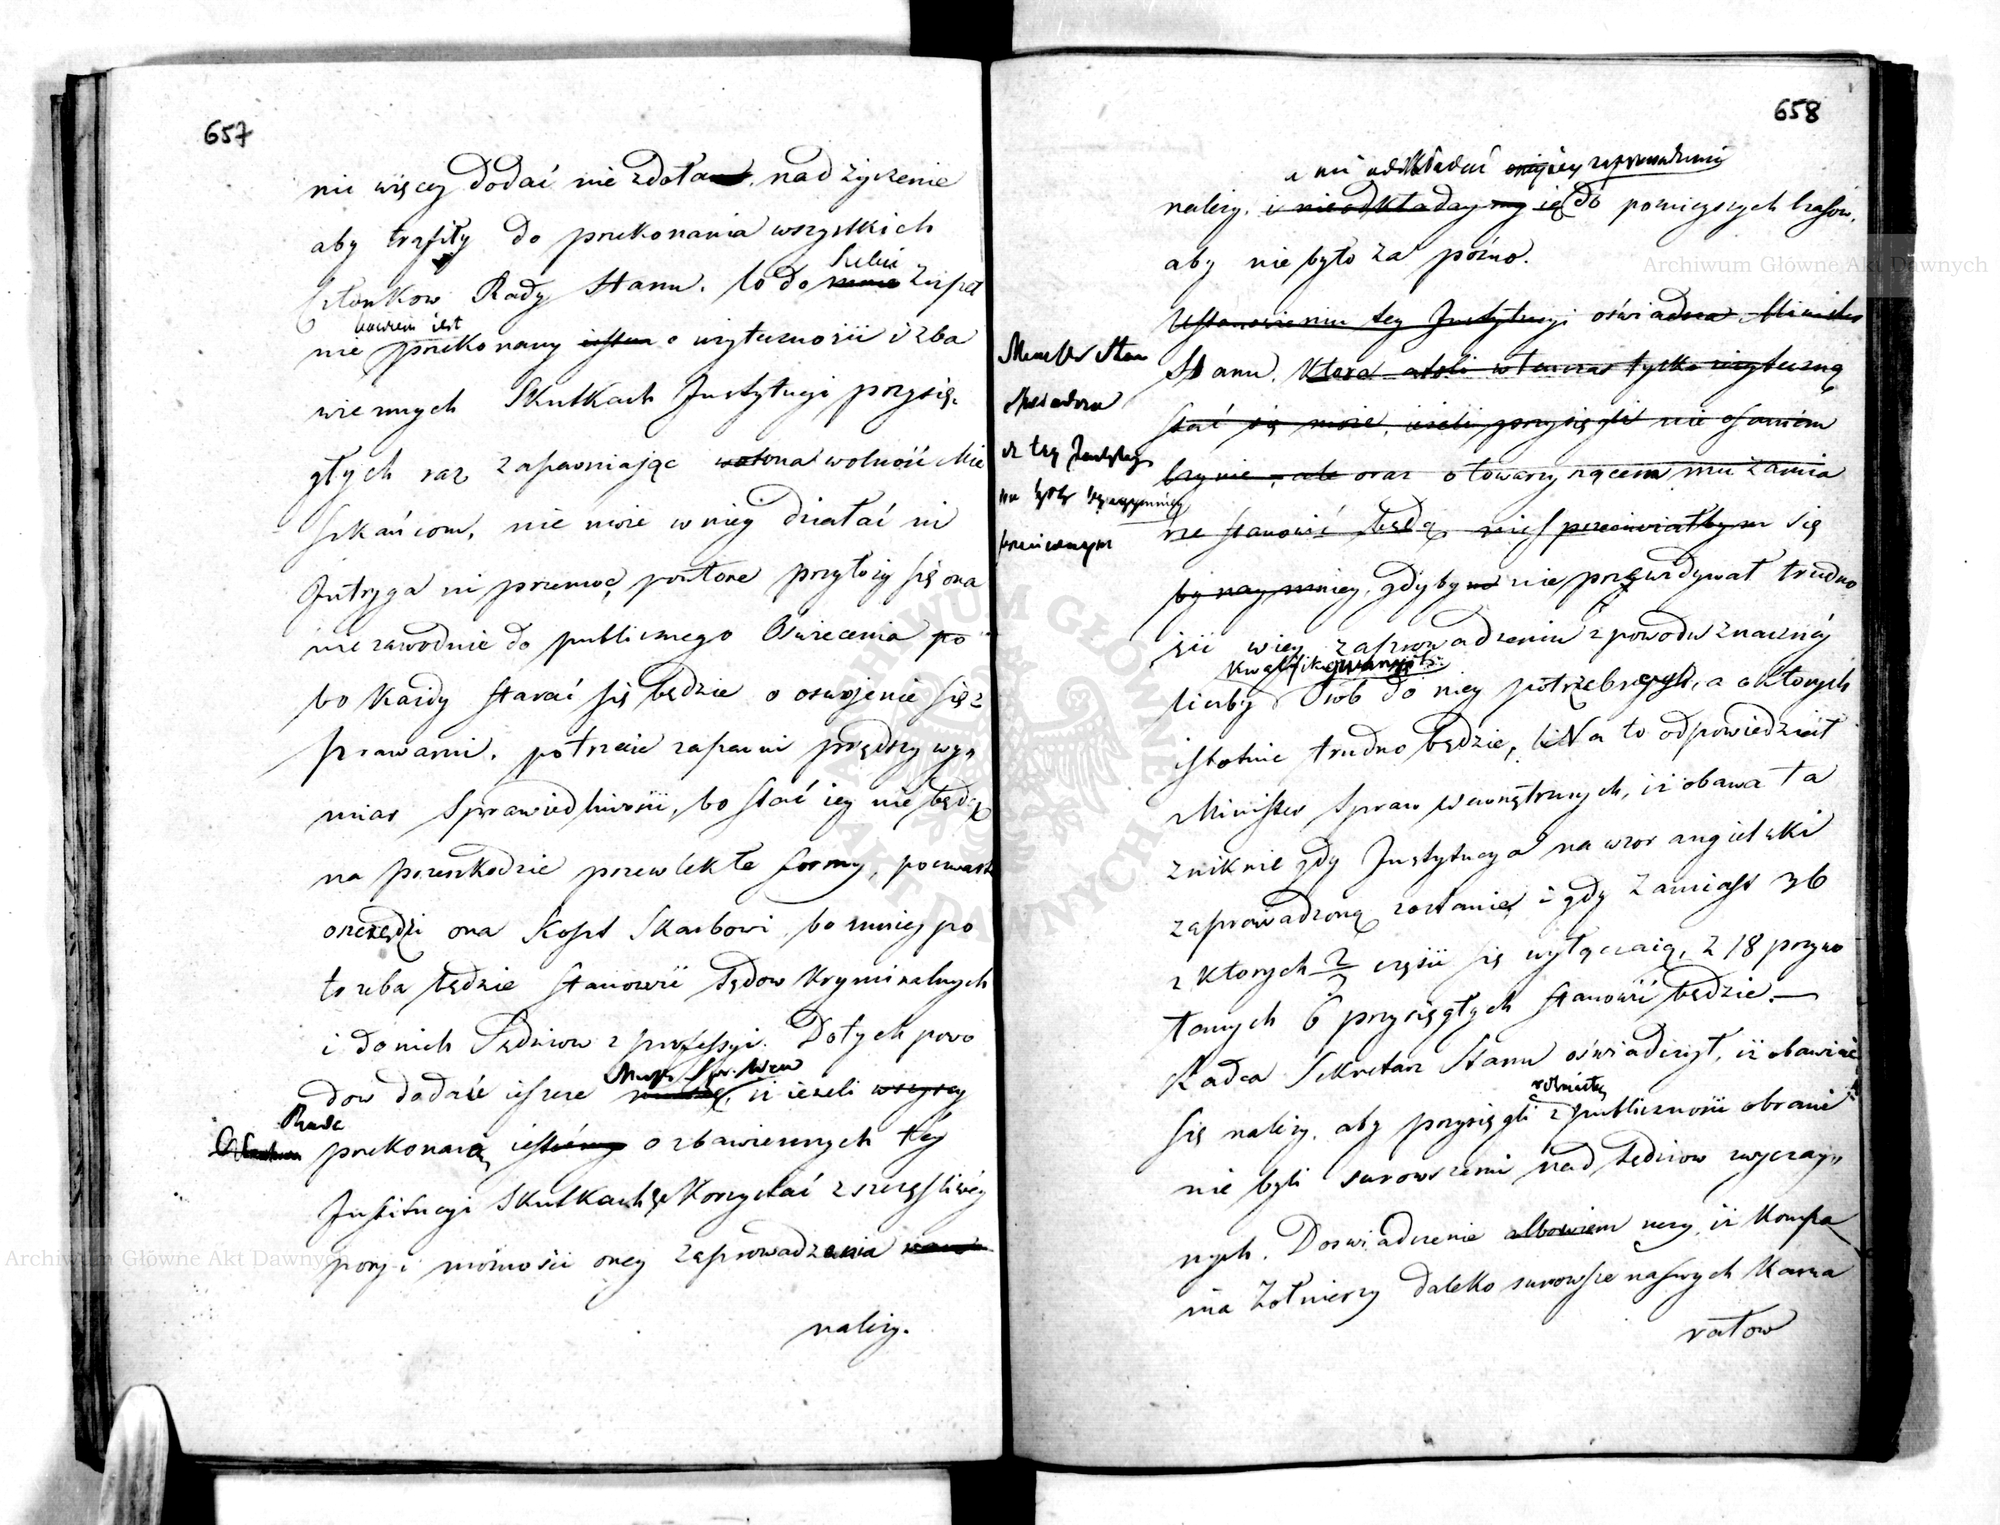 657
nic więcey dodać nie zdoła nad życzenie
aby trafiły do przekonania wszystkich
Członkow Rady Stanu. Co do mnie zupeł
nie bowiem iest przekonany iestem o użyteczności i zba
wiennych Skutkach Instytucyi przysię
głych raz zapewniając wolność Mie
szkańcom, nie może w niey działać ni
Intryga ni przemoc, powtóre przyłoży się ona
niezawodnie do publicznego Oświecenia po
bo każdy starać się będzie o oswojenie się z
prawami, potrzecie zapewni prędszy wy
miar Sprawiedliwości, bo stać iey nie będą
na przeszkodzie przewlekłe formy, poczwarte
oszczędzi ona koszt Skarbowi, bo mniey po
trzeba będzie stanowić Sędow kryminalnych
i do nich Sędziow z professyi. Do tych powo
Minister Spr. Wew
dow dodać ieszcze muszę, iż ieżeli wszyscy
Rada
przekonaną iesteśmy o zbawiennych tey
Instytucyi Skutkach, korzystać z szczęśliwey
pory i możności oney zaprowadzenia
należy.
658
a nie odkładać oney zaprowadzenia
należy, i nieodkładaymy ią do pomieyszych czasów,
aby nie było za pozno.
Ustanowieniu tey Instytucyi oświadcza Minister
Stanu, Która atoli wtenczas tylko użyteczną
stać się może, ieżeli przysięgli nie o samém
czynie, ale oraz o towarzyszącem mu zamia
rze stanowić będą, nie sprzeciwiałbym się
by naymniey, gdyby nie przewidywał trudno
Minister Stanu
oświadcza
iż tey Instytucyi
przeciwnym
ści w iey zaprowadzeniu z powodu znaczney
kwalifikowanych
liczby Osob do niey potrzebnych, a o ktorych
istotnie trudno będzie, Na to odpowiedział
Minister Spraw Wewnętrznych, iż obawa ta
zniknie gdy Instytucya na wzor angielski
zaprowadzoną zostanie, i gdy zamiast 36
z ktorych 2/3 części się wyłączaią, z 18 przywo
łanych 6 przysięgłych stanowić będzie.—
Radca Sekretarz Stanu oświadczył, iż obawiać
się należy, aby przysięgli z publiczności obrani
nie byli surowszemi nad Sędziow zwyczay
nych. Doswiadczenie albowiem uczy, iż kompa
nia Żołnierzy daleko surowsze na swych kama
ratow
Archiwum Główne Akt Dawnych
Archiwum Główne Akt Dawnych
ARCHIWUM GŁÓWNE AKT DAWNYCH